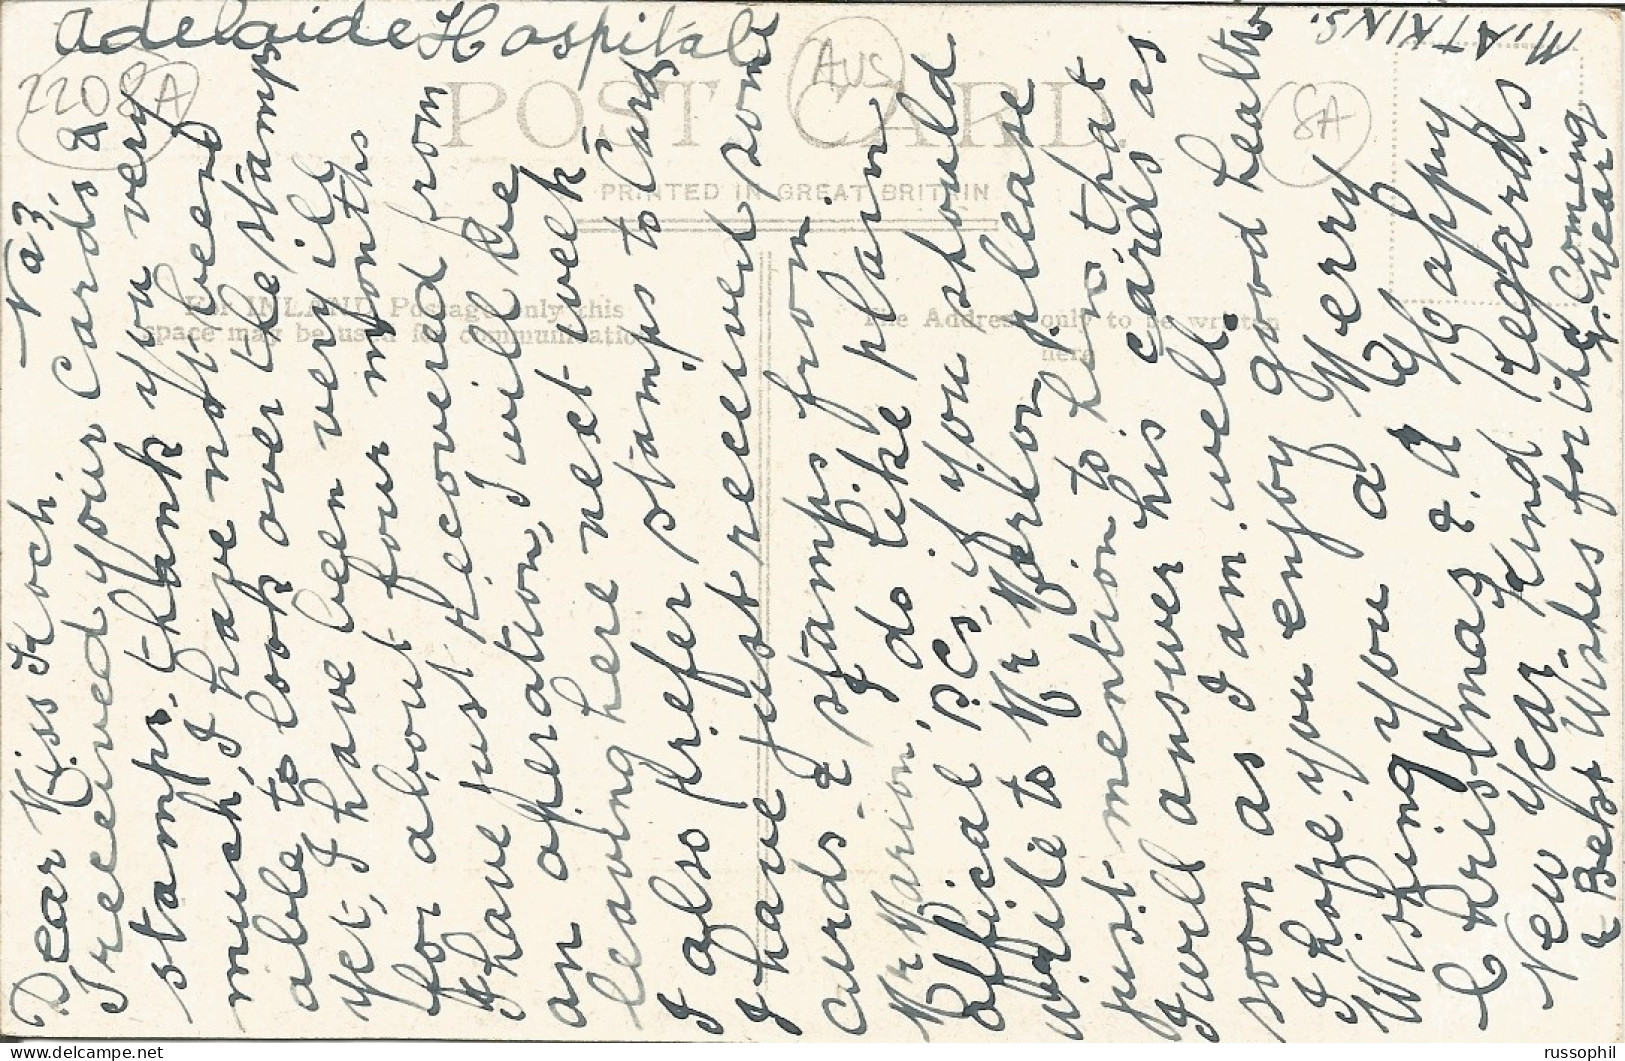 Adelaide Hospital
No 3.
Dear Miss Koch.
I received your Cards &
stamps. thank you very
much, I have not been
able to look over the stamps
yet, I have been very ill
for about four months
I have just recovered from
an operation, I will be
leaving here next week.
I also prefer stamps to Cards
I have just received some
cards & stamps from
Mr Marion, I do like plain
Offical P.Cs, if you should
write to Mr Marion please
just mention to him that
I will answer his cards as
soon as I am well.
I hope you enjoy good health
Wishing you a Merry
Christmas & A Happy
New Year. Kind Regards
& Best Wishes for the Coming
Year
M. ATKINS.
2208A
AUS
8A
POST CARD.
PRINTED IN GREAT BRITAIN
For INLAND Postage only this
space may be used for communication
The Address only to be written
here
russophil
www.delcampe.net